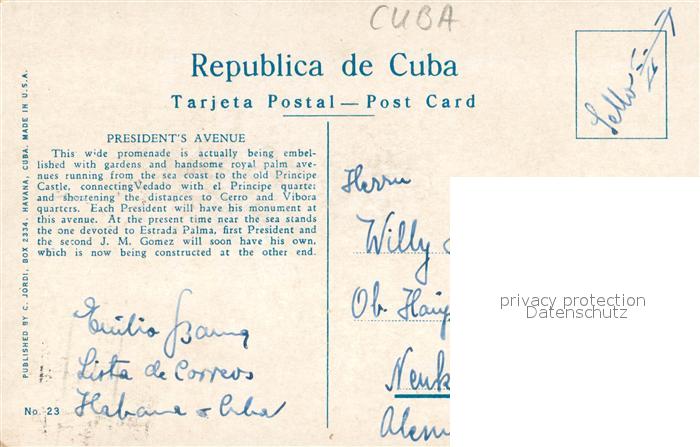 CUBA
Republica de Cuba
Tarjeta Postal — Post Card
Sello
PUBLISHED BY C. JORDI, BOX 2334, HAVANA, CUBA. MADE IN U.S.A.
PRESIDENT'S AVENUE
This wide promenade is actually being embel-
lished with gardens and handsome royal palm ave-
nues running from the sea coast to the old Principe
Castle, connecting Vedado with el Principe quarter
and shortening the distances to Cerro and Vibora
quarters. Each President will have his monument at
this avenue. At the present time near the sea stands
the one devoted to Estrada Palma, first President and
the second J. M. Gomez will soon have his own,
which is now being constructed at the other end.
Emilio
Lista de Correos
Habana - Cuba
No. 23
Herrn
Willy
Ob.
privacy protection
Datenschutz